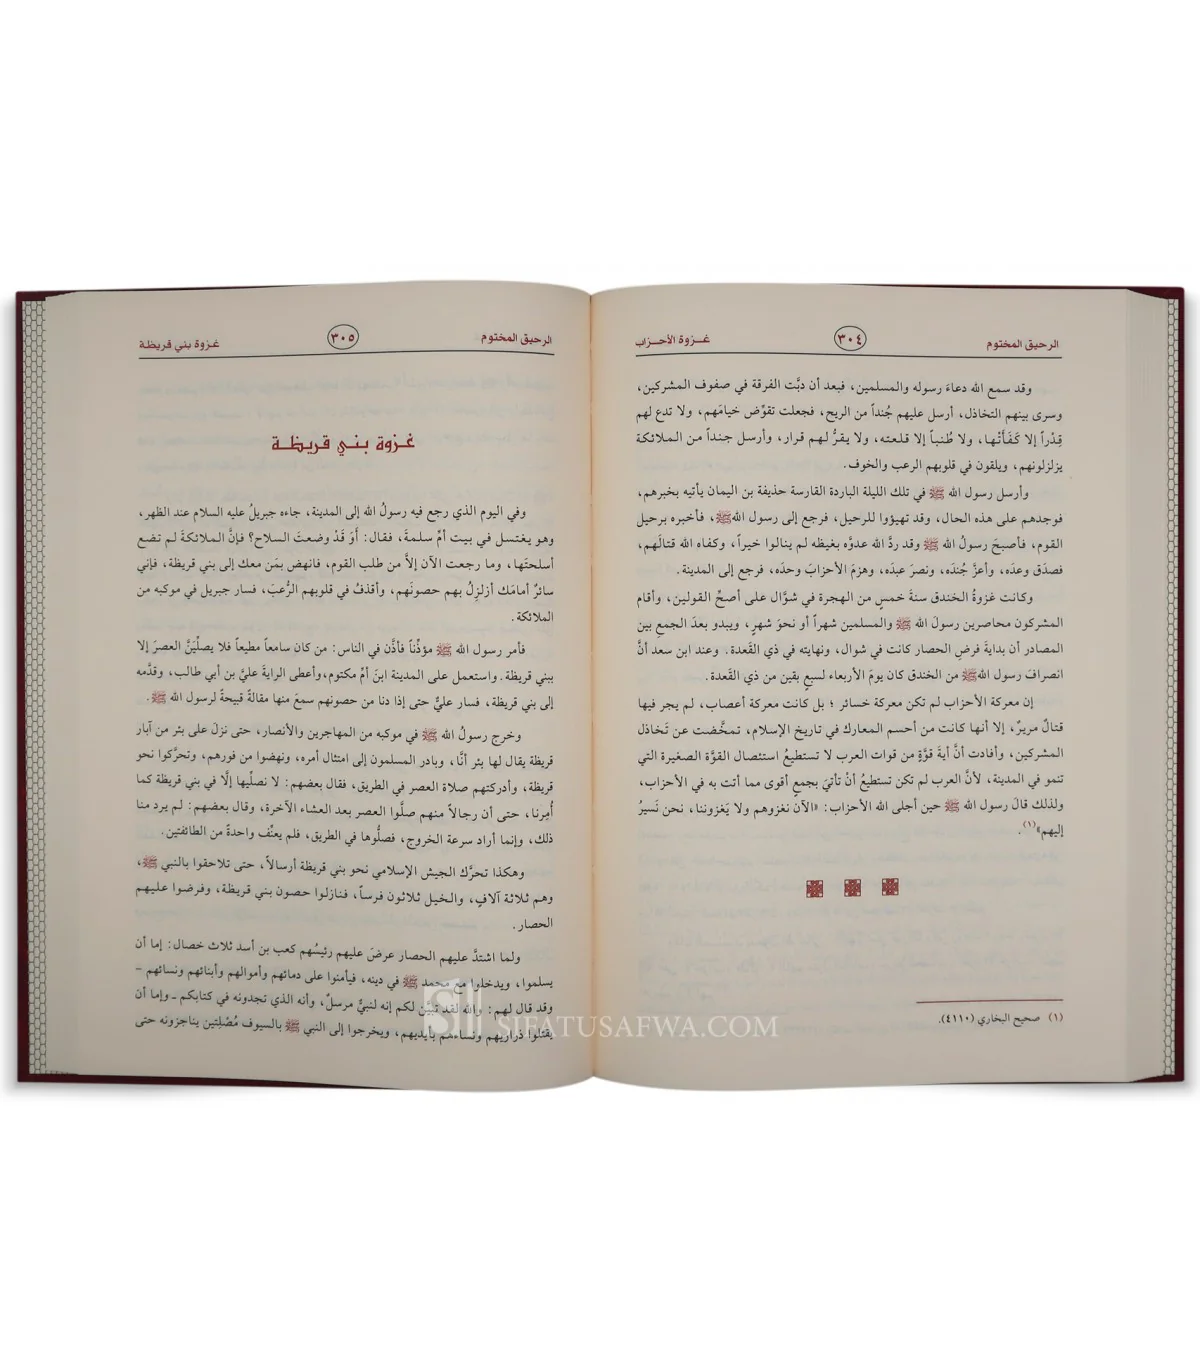 الرحيق المختوم
٣٠٤
غـزوة الأحـزاب
وقد سمع الله دعاءَ رسوله والمسلمين، فبعد أن دبَّت الفرقة في صفوف المشركين،
وسرى بينهم التخاذل، أرسل عليهم جُنداً من الريح، فجعلت تقوِّض خيامَهم، ولا تدع لهم
قِدْراً إلا كَفَأَتْها، ولا طُنباً إلا قلعته، ولا يقرُّ لهم قرار، وأرسل جنداً من الملائكة
يزلزلونهم، ويلقون في قلوبهم الرعب والخوف.
وأرسل رسول الله ﷺ في تلك الليلة الباردة القارسة حذيفة بن اليمان يأتيه بخبرهم،
فوجدهم على هذه الحال، وقد تهيؤوا للرحيل، فرجع إلى رسول الله ﷺ، فأخبره برحيل
القوم، فأصبحَ رسولُ الله ﷺ وقد ردَّ الله عدوَّه بغيظه لم ينالوا خيراً، وكفاه الله قتالَهم،
فصدَق وعدَه، وأعزَّ جُندَه، ونصرَ عبدَه، وهزمَ الأحزابَ وحدَه، فرجع إلى المدينة.
وكانت غزوةُ الخندق سنةَ خمسٍ من الهجرة في شوَّال على أصحِّ القولين، وأقام
المشركون محاصرين رسولَ الله ﷺ والمسلمين شهراً أو نحوَ شهرٍ، ويبدو بعدَ الجمعِ بين
المصادر أن بدايةَ فرضِ الحصار كانت في شوال، ونهايته في ذي القَعدة. وعند ابن سعد أنَّ
انصرافَ رسول الله ﷺ من الخندق كان يومَ الأربعاء لسبعٍ بقين من ذي القَعدة.
إن معركة الأحزاب لم تكن معركة خسائر؛ بل كانت معركة أعصاب، لم يجر فيها
قتالٌ مريرٌ، إلا أنها كانت من أحسم المعارك في تاريخ الإسلام، تمخَّضت عن تَخاذل
المشركين، وأفادت أنَّ أيةَ قوَّةٍ من قوات العرب لا تستطيعُ استئصال القوَّة الصغيرة التي
تنمو في المدينة، لأنَّ العرب لم تكن تستطيعُ أنْ تأتيَ بجمعٍ أقوى مما أتت به في الأحزاب،
ولذلك قالَ رسول الله ﷺ حين أجلى الله الأحزاب: «الآن نغزوهم ولا يَغزوننا، نحن نَسيرُ
إليهم»(١).
(١) صحيح البخاري (٤١١٠).
الرحيق المختوم
٣٠٥
غـزوة بني قريظة
غـزوة بنـي قريظـة
وفي اليوم الذي رجع فيه رسولُ الله إلى المدينة، جاءه جبريلُ عليه السلام عند الظهر،
وهو يغتسل في بيت أمِّ سلمةَ، فقال: أَوَ قَدْ وضعتَ السلاح؟ فإنَّ الملائكةَ لم تضع
أسلحتَها، وما رجعت الآن إلاَّ من طلب القوم، فانهض بمَن معك إلى بني قريظة، فإني
سائرٌ أمامَك أزلزِلُ بهم حصونَهم، وأقذفُ في قلوبهم الرُّعبَ، فسار جبريل في موكبه من
الملائكة.
فأمر رسول الله ﷺ مؤذِّناً فأذَّن في الناس: من كان سامعاً مطيعاً فلا يصلِّيَنَّ العصرَ إلا
ببني قريظة. واستعمل على المدينة ابنَ أمِّ مكتوم، وأعطى الرايةَ عليَّ بن أبي طالب، وقدَّمه
إلى بني قريظة، فسار عليٌّ حتى إذا دنا من حصونهم سمعَ منها مقالةً قبيحةً لرسول الله ﷺ.
وخرج رسولُ الله ﷺ في موكبه من المهاجرين والأنصار، حتى نزلَ على بئر من آبار
قريظة يقال لها بئر أنَّا، وبادر المسلمون إلى امتثال أمره، ونهضوا من فورهم، وتحرَّكوا نحو
قريظة، وأدركتهم صلاة العصر في الطريق، فقال بعضهم: لا نصلِّيها إلَّا في بني قريظة كما
أُمِرنا، حتى أن رجالاً منهم صلَّوا العصر بعد العشاء الآخرة، وقال بعضهم: لم يرد منا
ذلك، وإنما أراد سرعة الخروج، فصلُّوها في الطريق، فلم يعنِّف واحدةً من الطائفتين.
وهكذا تحرَّك الجيش الإسلامي نحو بني قريظة أرسالاً، حتى تلاحقوا بالنبي ﷺ،
وهم ثلاثة آلافٍ، والخيل ثلاثون فرساً، فنازلوا حصون بني قريظة، وفرضوا عليهم
الحصار.
ولما اشتدَّ عليهم الحصار عرضَ عليهم رئيسُهم كعب بن أسد ثلاث خصال: إما أن
يسلموا، ويدخلوا مع محمد ﷺ في دينه، فيأمنوا على دمائهم وأموالهم وأبنائهم ونسائهم -
وقد قال لهم: والله لقد تبيَّن لكم إنه لنبيٌّ مرسلٌ، وأنه الذي تجدونه في كتابكم - وإما أن
يقتلوا ذراريهم ونساءهم بأيديهم، ويخرجوا إلى النبي ﷺ بالسيوف مُصْلِتين يناجزونه حتى
SIFATUSAFWA.COM